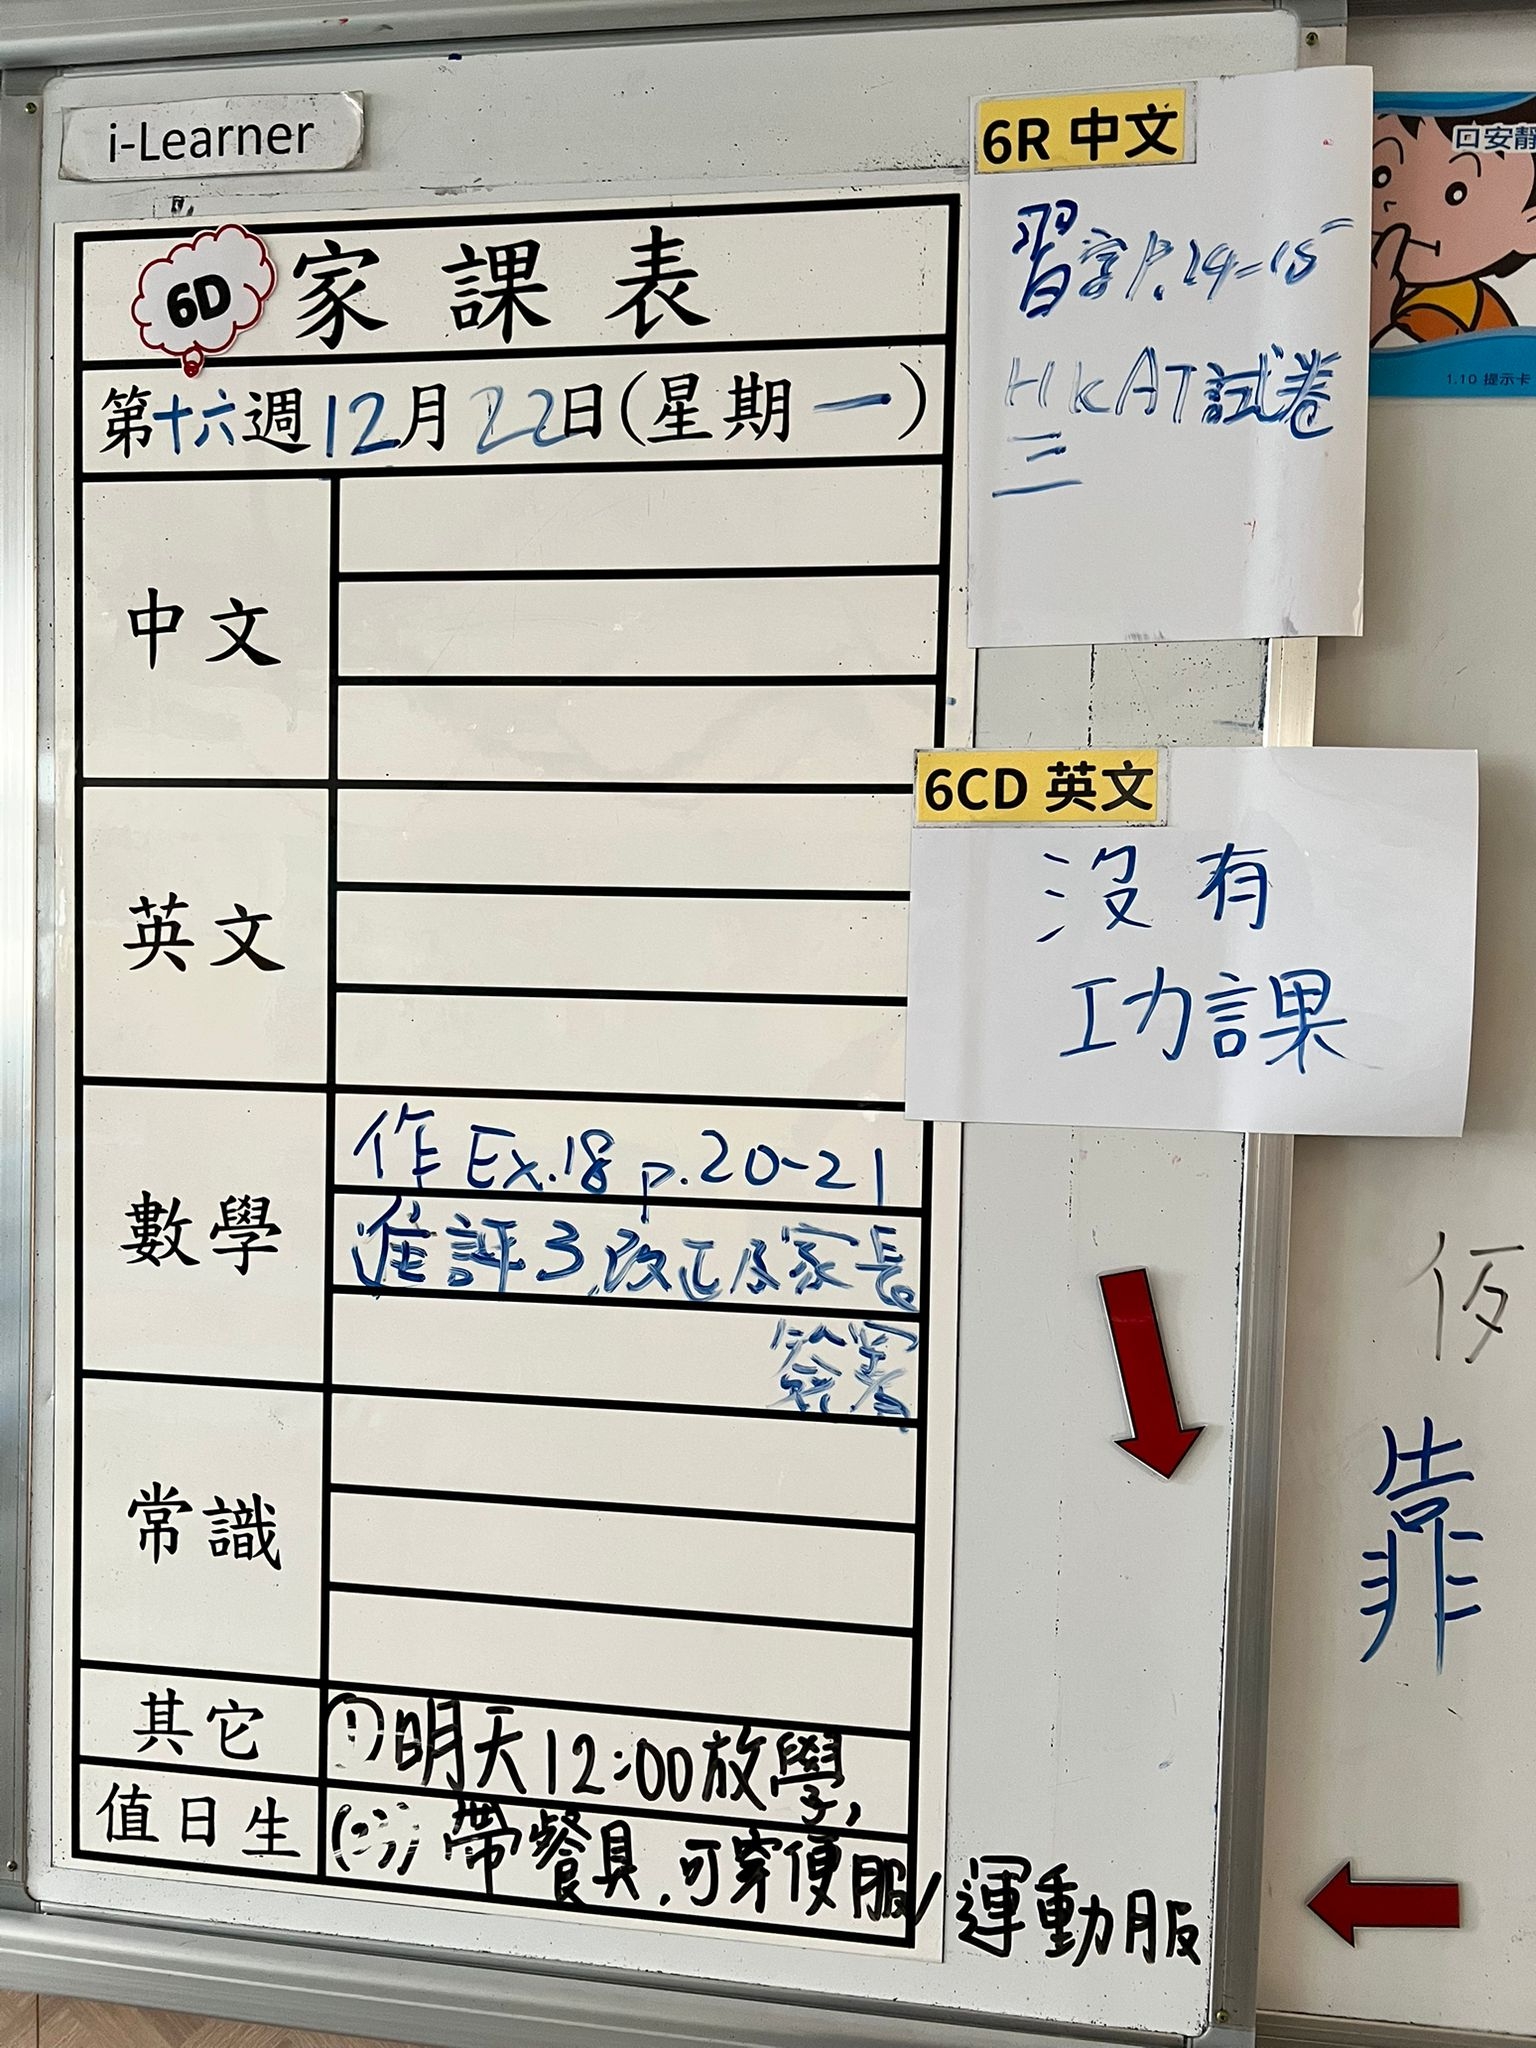 i-Learner
6D 家課表
第十六週 12月22日(星期一)
中文
英文
數學
作 Ex.18 p.20-21
進評3 改正及家長
簽署
常識
其它
①明天12:00放學,
值日生
(2) 帶餐具,可穿便服/運動服
6R 中文
習字 P.14-15
HKAT試卷
三
6CD 英文
沒有
功課
口安靜
1.10 提示卡
靠